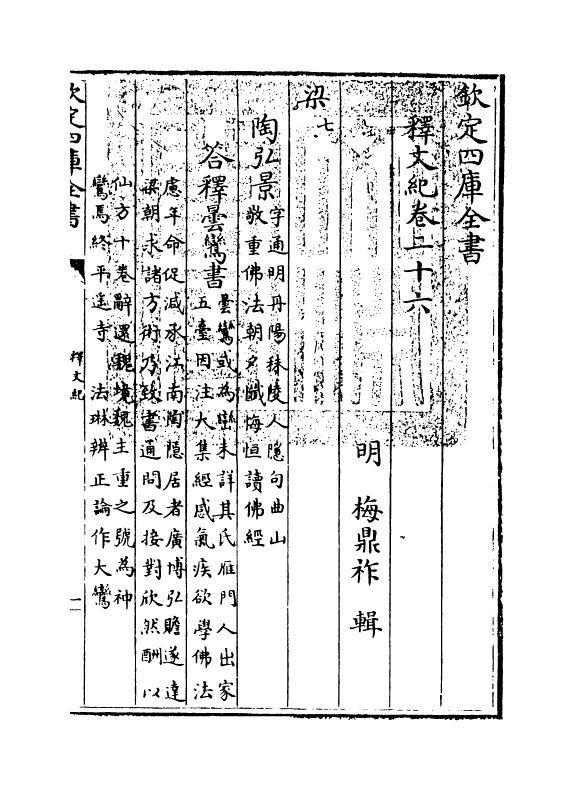 欽定四庫全書
釋文紀卷二十六
明 梅鼎祚 輯
梁七
陶弘景字通明丹陽秣陵人隱句曲山
敬重佛法朝夕懺悔恒讀佛經
答釋曇鸞書曇鸞或為巒未詳其氏雁門人出家
五臺因注大集經感氣疾欲學佛法
慮年命促減承江南陶隱居者廣博弘贍遂達
梁朝求諸方術乃致書通問及接對欣然酬以
仙方十卷辭還魏境魏主重之號為神
鸞焉終平遙寺 法琳辨正論作大鸞
欽定四庫全書
釋文紀
一